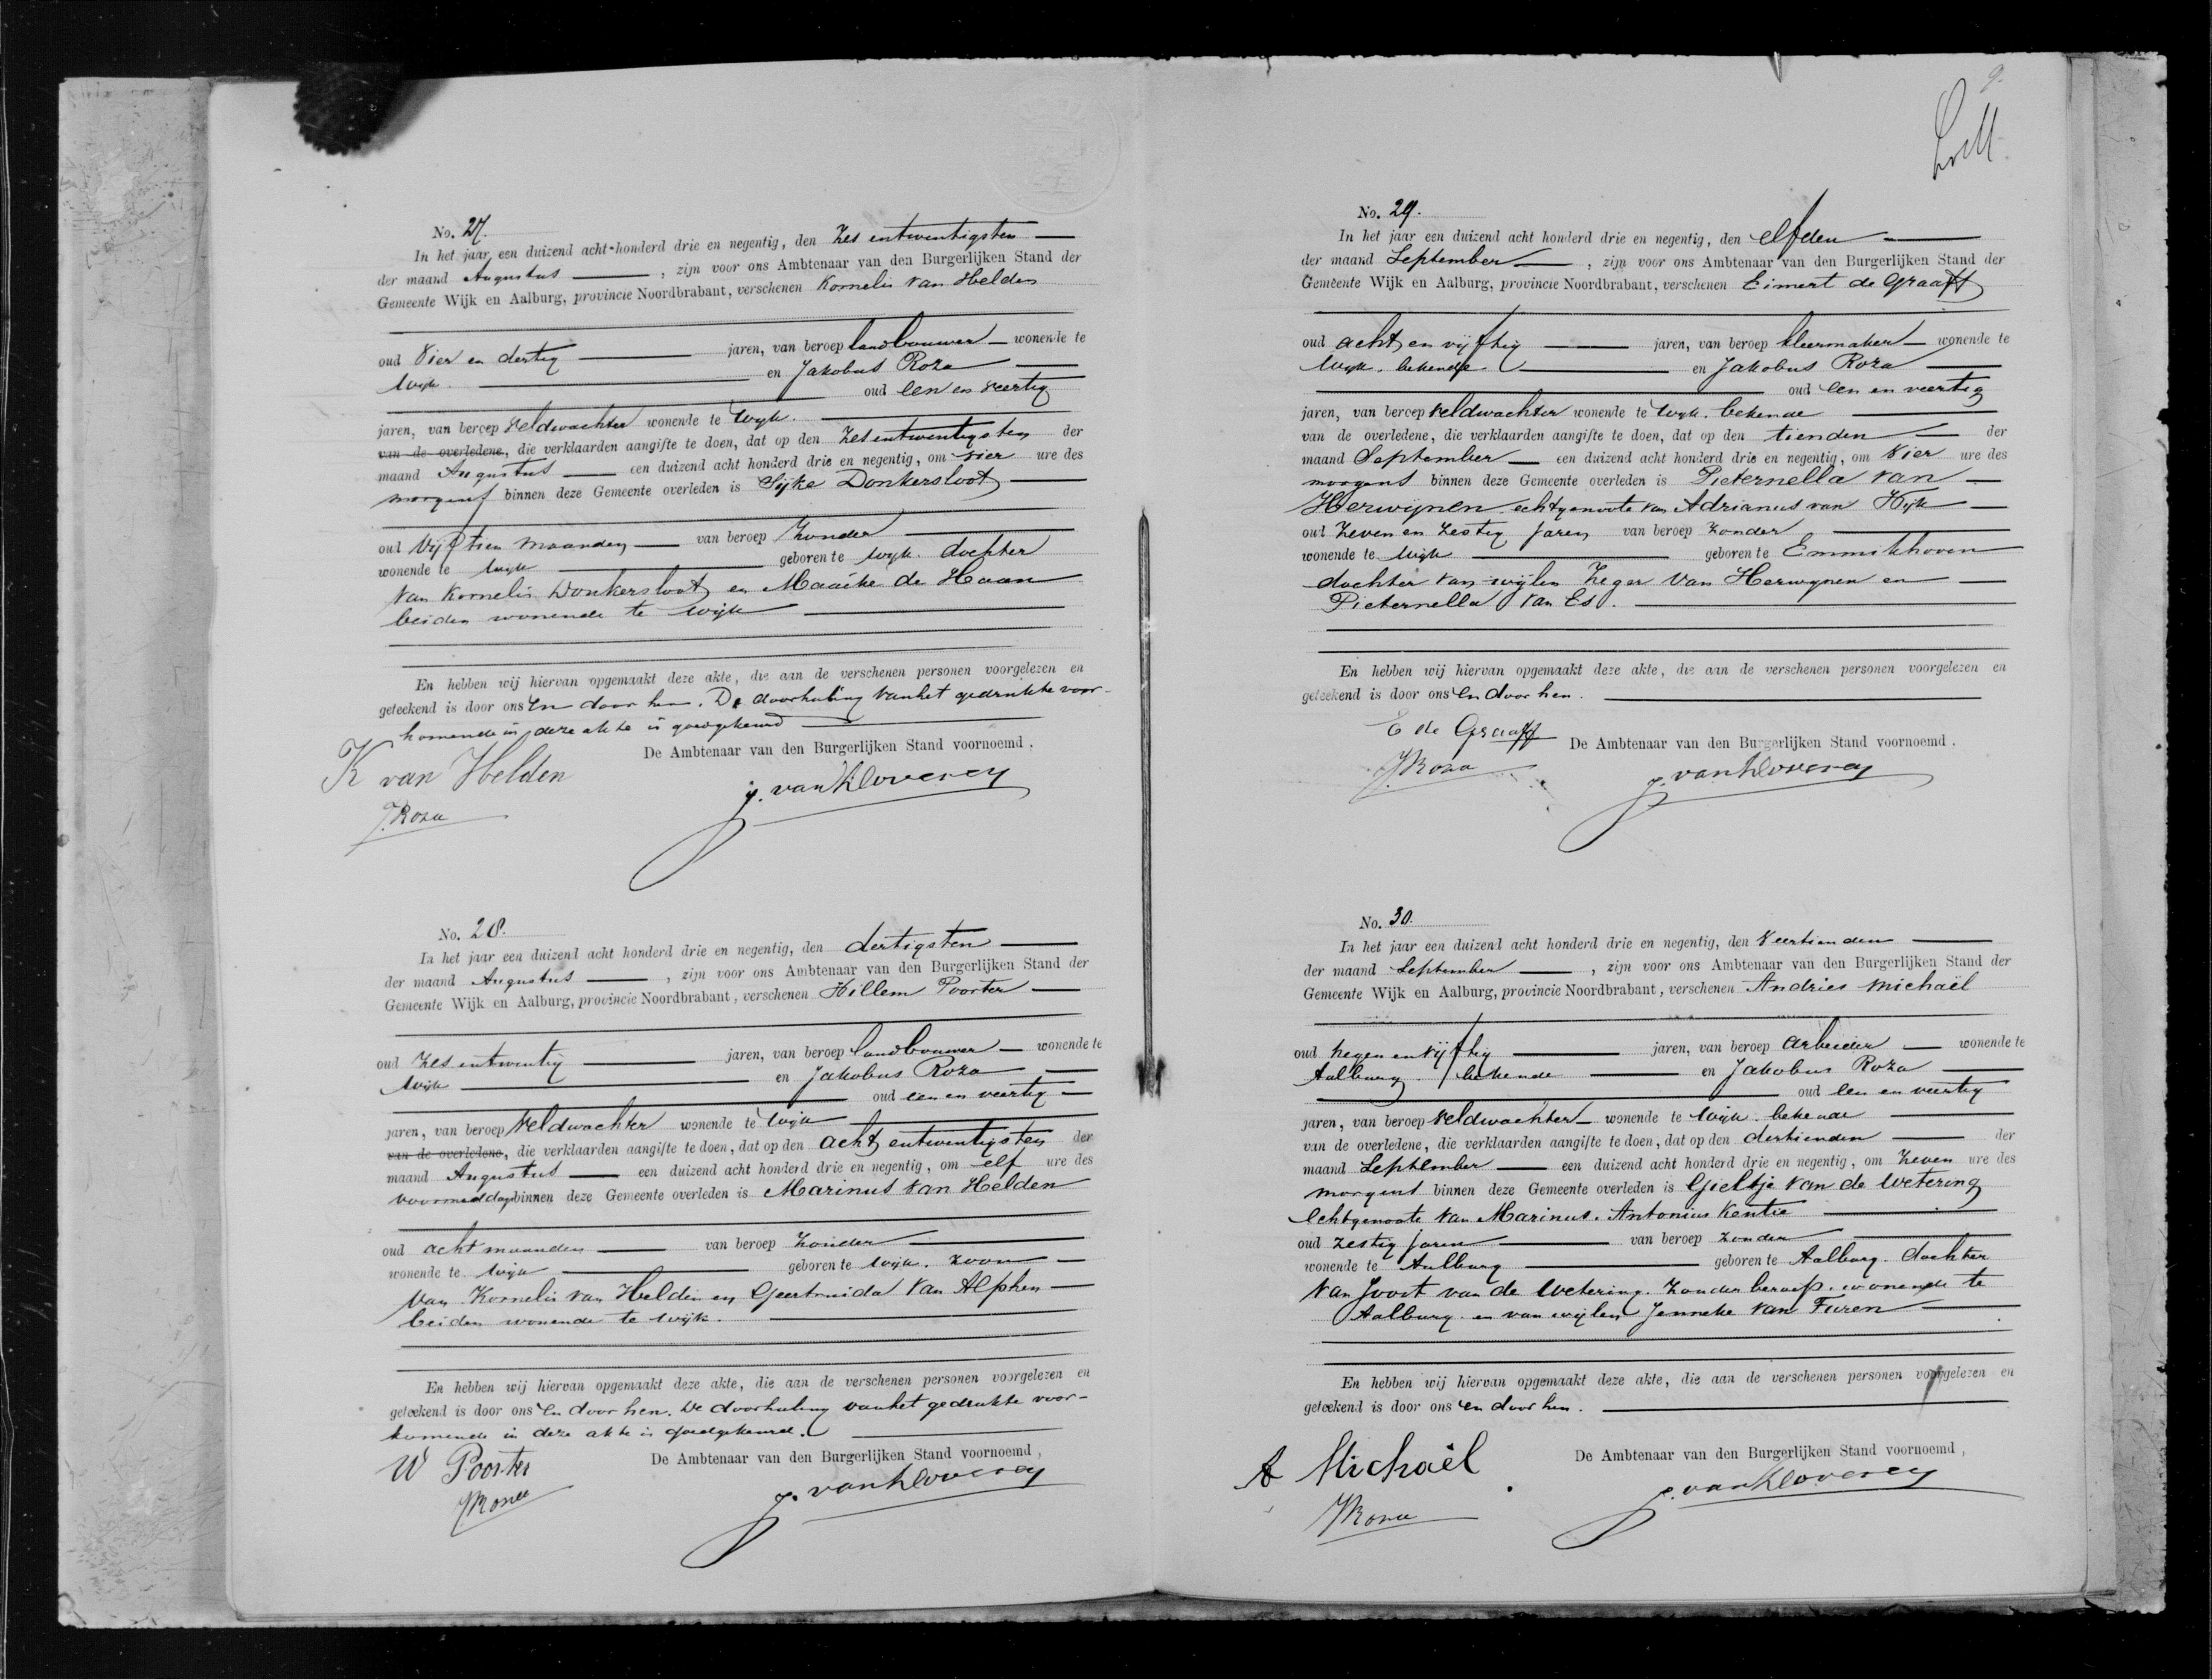 No. 27.
In het jaar een duizend acht honderd drie en negentig, den Zes entwintigsten
der maand Augustus, zijn voor ons Ambtenaar van den Burgerlijken Stand der
Gemeente Wijk en Aalburg, provincie Noordbrabant, verschenen Kornelis van Helden
oud Vier en dertig jaren, van beroep landbouwer wonende te
Wijk. en Jakobus Roza
oud een en veertig
jaren, van beroep Veldwachter wonende te Wijk.
van de overledene, die verklaarden aangifte te doen, dat op den Zes entwintigsten der
maand Augustus een duizend acht honderd drie en negentig, om vier ure des
morgens binnen deze Gemeente overleden is Sijke Donkersloot
oud Vijftien maanden van beroep Zonder
wonende te Wijk geboren te Wijk. dochter
van Kornelis Donkersloot en Maaike de Haan
beiden wonende te Wijk
En hebben wij hiervan opgemaakt deze akte, die aan de verschenen personen voorgelezen en
geteekend is door ons En door hen. De doorhaling van het gedrukte voor-
komende in deze akte is goedgekeurd
De Ambtenaar van den Burgerlijken Stand voornoemd.
K van Helden
J. van Kloverey
J. Roza
No. 28.
In het jaar een duizend acht honderd drie en negentig, den dertigsten
der maand Augustus, zijn voor ons Ambtenaar van den Burgerlijken Stand der
Gemeente Wijk en Aalburg, provincie Noordbrabant, verschenen Willem Poorter
oud Zes entwintig jaren, van beroep landbouwer wonende te
Wijk en Jakobus Roza
oud een en veertig
jaren, van beroep Veldwachter wonende te Wijk
van de overledene, die verklaarden aangifte te doen, dat op den acht entwintigsten der
maand Augustus een duizend acht honderd drie en negentig, om elf ure des
voormiddags binnen deze Gemeente overleden is Marinus van Helden
oud acht maanden van beroep Zonder
wonende te Wijk geboren te Wijk. zoon
van Kornelis van Helden en Geertruida van Alphen
beiden wonende te Wijk.
En hebben wij hiervan opgemaakt deze akte, die aan de verschenen personen voorgelezen en
geteekend is door ons en door hen. De doorhaling van het gedrukte voor-
komende in deze akte is goedgekeurd.
De Ambtenaar van den Burgerlijken Stand voornoemd,
W Poorter
J. van Kloverey
J Roza
9.
No. 29.
In het jaar een duizend acht honderd drie en negentig, den elfden
der maand September, zijn voor ons Ambtenaar van den Burgerlijken Stand der
Gemeente Wijk en Aalburg, provincie Noordbrabant, verschenen Eimert de Graaff
oud acht en vijftig jaren, van beroep kleermaker wonende te
Wijk. bekende en Jakobus Roza
oud een en veertig
jaren, van beroep Veldwachter wonende te Wijk. bekende
van de overledene, die verklaarden aangifte te doen, dat op den tienden der
maand September een duizend acht honderd drie en negentig, om Vier ure des
morgens binnen deze Gemeente overleden is Pieternella van
Herwijnen echtgenoote van Adrianus van Wijk
oud Zeven en Zestig jaren van beroep Zonder
wonende te Wijk geboren te Emmikhoven
dochter van wijlen Zeger van Herwijnen en
Pieternella van Es.
En hebben wij hiervan opgemaakt deze akte, die aan de verschenen personen voorgelezen en
geteekend is door ons En door hen.
E de Graaff
De Ambtenaar van den Burgerlijken Stand voornoemd.
J Roza
J. van Kloverey
No. 30.
In het jaar een duizend acht honderd drie en negentig, den Veertienden
der maand September, zijn voor ons Ambtenaar van den Burgerlijken Stand der
Gemeente Wijk en Aalburg, provincie Noordbrabant, verschenen Andries Michaël
oud negen en vijftig jaren, van beroep arbeider wonende te
Aalburg. bekende en Jakobus Roza
oud een en veertig
jaren, van beroep Veldwachter wonende te Wijk. bekende
van de overledene, die verklaarden aangifte te doen, dat op den dertienden der
maand September een duizend acht honderd drie en negentig, om Zeven ure des
morgens binnen deze Gemeente overleden is Gieltje van de Wetering
echtgenoote van Marinus Antonius Kentie
oud Zestig jaren van beroep Zonder
wonende te Aalburg geboren te Aalburg. dochter
van Joost van de Wetering. Zonder beroep. wonende te
Aalburg en van wijlen Jenneke van Turen
En hebben wij hiervan opgemaakt deze akte, die aan de verschenen personen voorgelezen en
geteekend is door ons en door hen.
De Ambtenaar van den Burgerlijken Stand voornoemd,
A Michaël
J. van Kloverey
J Roza